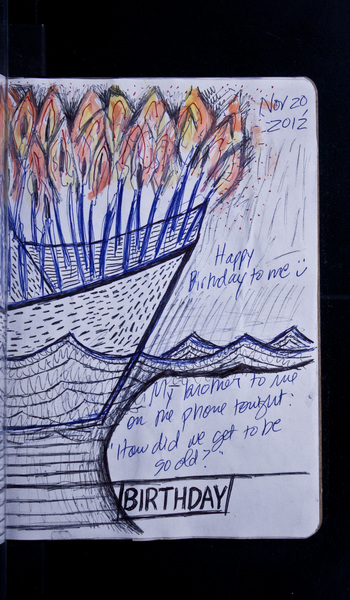 Nov 20
2012
Happy
Birthday to me
My brother to me
on the phone tonight:
"How did we get to be
so old?"
BIRTHDAY